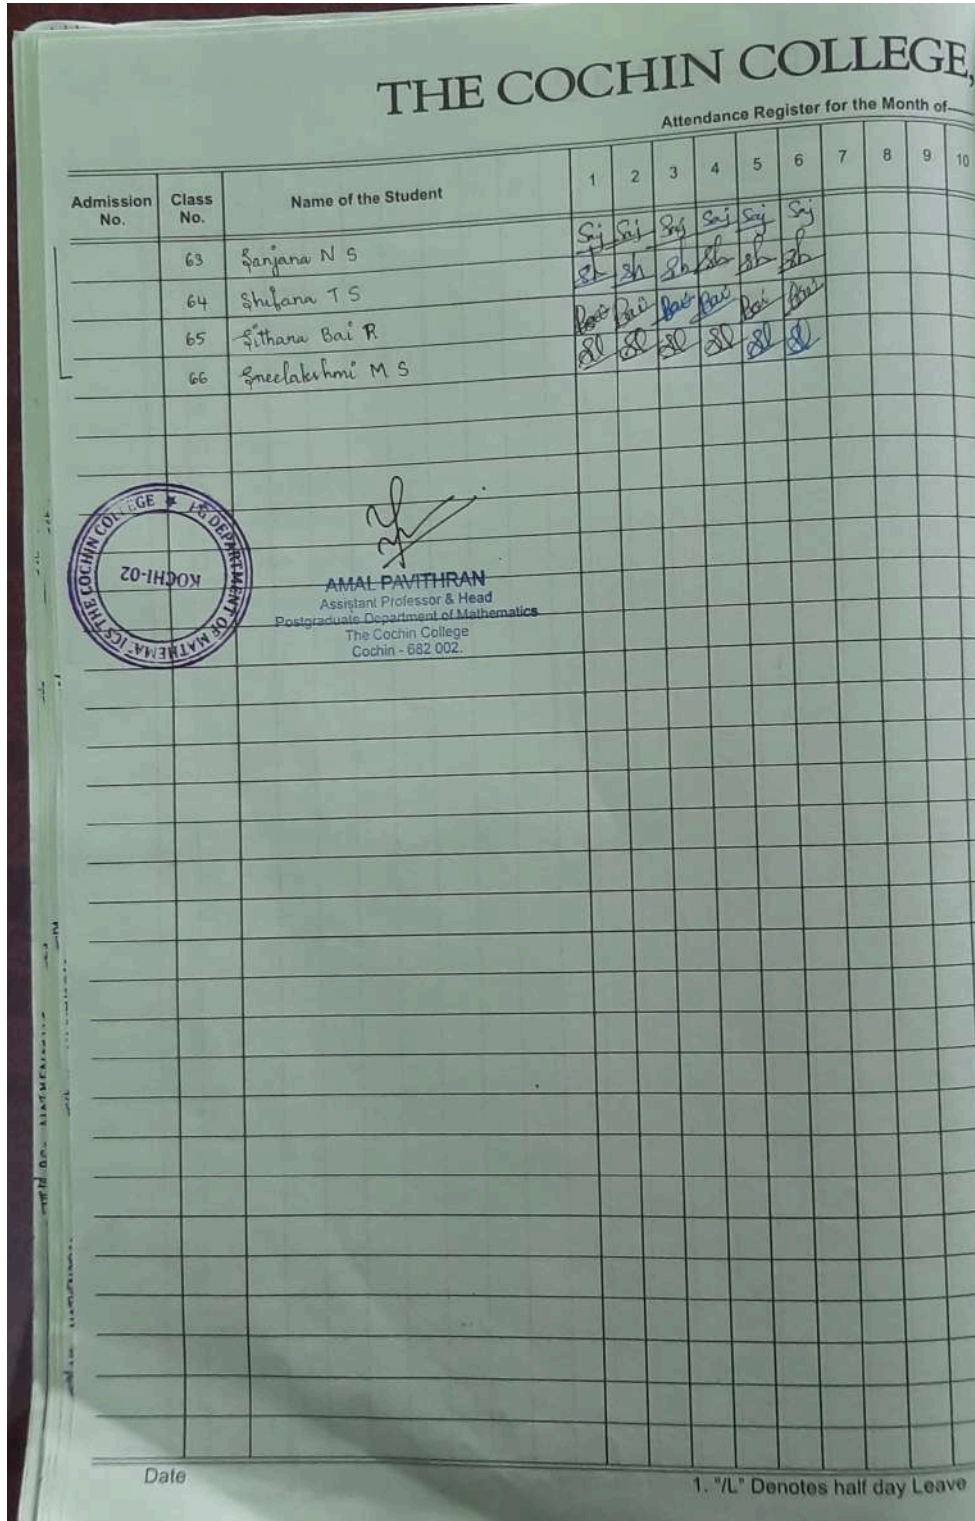 THE COCHIN COLLEGE,
Attendance Register for the Month of
Admission No. Class No. Name of the Student 1 2 3 4 5 6 7 8 9 10
63 Sanjana N S Saj Saj Saj Saj Saj Saj
64 Shifana T S Sh Sh Sh Sh Sh Sh
65 Sithana Bai R Bai Bai Bai Bai Bai Bai
66 Sreelakshmi M S Sl Sl Sl Sl Sl Sl
PG DEPARTMENT OF MATHEMATICS THE COCHIN COLLEGE ★
KOCHI-02
AMAL PAVITHRAN
Assistant Professor & Head
Postgraduate Department of Mathematics
The Cochin College
Cochin - 682 002.
Date
1. "/L" Denotes half day Leave